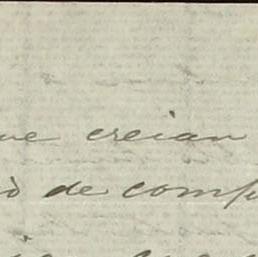 ue creian
ò de comp